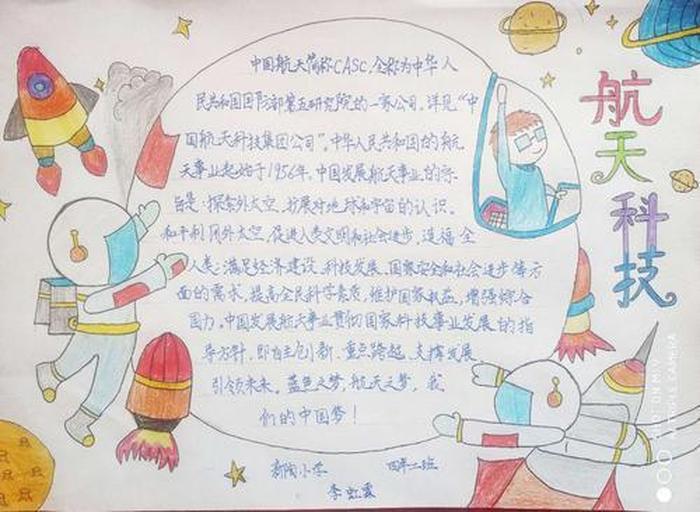 航天科技
中国航天简称CASC,全称为中华人
民共和国国防部第五研究院的一家公司。详见“中
国航天科技集团公司”。中华人民共和国的航
天事业起始于1956年。中国发展航天事业的宗
旨是:探索外太空,扩展对地球和宇宙的认识。
和平利用外太空,促进人类文明和社会进步,造福全
人类;满足经济建设、科技发展、国家安全和社会进步等方
面的需求,提高全民科学素质,维护国家权益,增强综合
国力。中国发展航天事业贯彻国家科技事业发展的指
导方针,即自主创新、重点跨越、支撑发展、
引领未来。蓝色之梦,航天之梦,我
们的中国梦!
小学 四年二班
李虹霖
AI TRIPLE CAMERA